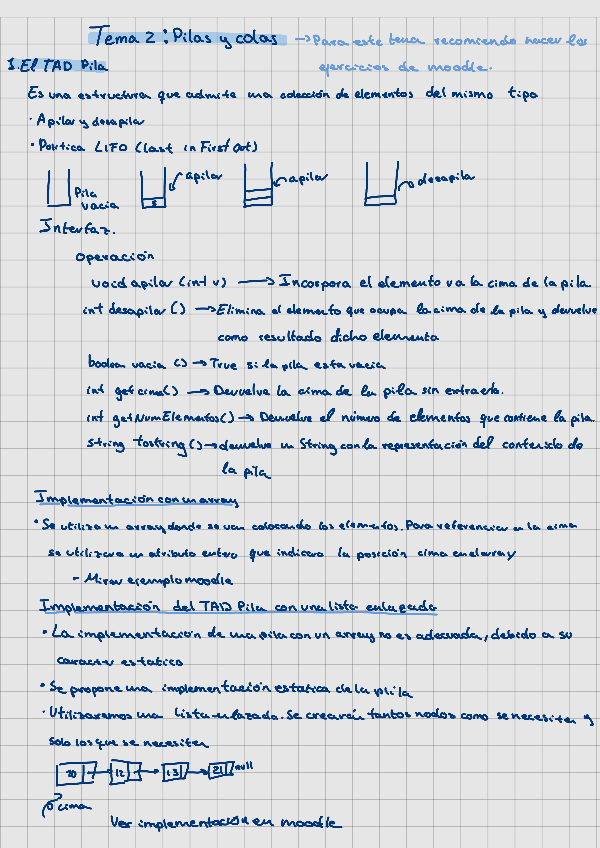 Tema 2: Pilas y colas → Para este tema recomiendo hacer los
ejercicios de moodle.
1. El TAD Pila
Es una estructura que admite una colección de elementos del mismo tipo
· Apilar y desapilar
· Política LIFO (last in First out)
Pila vacia
apilar
apilar
desapila
Interfaz.
Operación
void apilar (int v) → Incorpora el elemento v a la cima de la pila
int desapilar () → Elimina el elemento que ocupa la cima de la pila y devuelve
como resultado dicho elemento
boolean vacia () → True si la pila esta vacia
int getcima() → Devuelve la cima de la pila sin extraerla.
int getNumElementos() → Devuelve el número de elementos que contiene la pila.
string tostring () → devuelve un String con la representación del contenido de
la pila
Implementación con un array
· Se utiliza un array donde se van colocando los elementos. Para referenciar a la cima
se utilizara un atributo entero que indicara la posición cima en el array
- Mirar ejemplo moodle
Implementación del TAD Pila con una lista enlazada
· La implementación de una pila con un array no es adecuada, debido a su
caracter estatico
· Se propone una implementación estatica de la plila
· Utilizaremos una lista enlazada. Se crearán tantos nodos como se necesiten y
solo los que se necesiten
12 13 21 null
cima
Ver implementación en moodle